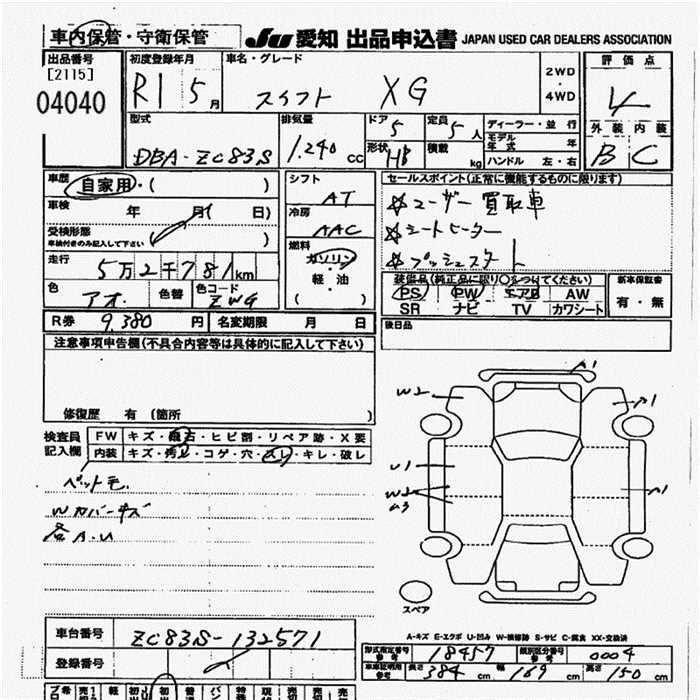 車内保管・守衛保管
JU 愛知 出品申込書 JAPAN USED CAR DEALERS ASSOCIATION
出品番号
[2115]
04040
初度登録年月
R1 5月
車名・グレード
スイフト XG
2WD
・
4WD
評価点
4
外装 内装
B C
型式
DBA-ZC83S
排気量
1.240 cc
ドア 5
形状 HB
定員 5人
積載 kg
ディーラー・並行
モデル年式 年
ハンドル 左・右
車歴
自家用・( )
車検 年 月( 日)
受検形態
車検付きのみ記入して下さい ( )
走行 5万2千781km
色 アオ 色替 色コード ZWG
シフト
AT
冷房
AAC
燃料
ガソリン
軽・油
( )
セールスポイント(正常に機能するものに限ります)
☆ユーザー買取車
☆シートヒーター
☆プッシュスタート
装備品(純正品に限り○をつけてください)
PS PW エアB AW
SR ナビ TV カワシート
新車保証書
有・無
R券 9,380円 名変期限 月 日
後日品
注意事項申告欄(不具合内容等は具体的に記入して下さい)
修復歴 有 (箇所 )
検査員記入欄
FW キズ・飛石・ヒビ割・リペア跡・X要
内装 キズ・汚れ・コゲ・穴・スレ・キレ・破レ
ペット毛
Wカバーキズ
各A.U
A1
W2
A1
U1
W2
A3
A1
スペア
A-キズ E-エクボ U-凹み W-補修跡 S-サビ C-腐食 XX-交換済
車台番号 ZC83S-132571
登録番号
型式指定番号 18457 類別区分番号 0004
車車証明用参考 長さ 384cm 幅 169cm 高さ 150cm